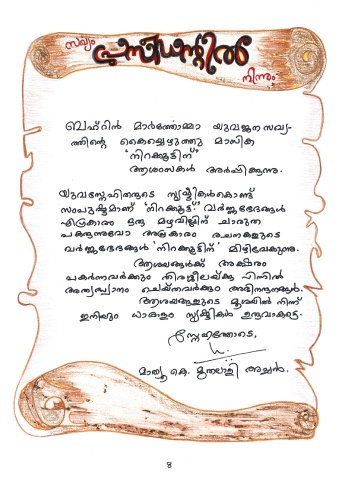 സഖ്യം
പ്രസിഡന്റിൽ
നിന്നും
ബഹ്റിൻ മാർത്തോമ്മാ യുവജന സഖ്യ-
ത്തിന്റെ കൈയ്യെഴുത്തു മാസിക
'നിറക്കൂട്ടിന്'
ആശംസകൾ അർപ്പിക്കുന്നു.
യുവസ്നേഹിതരുടെ സൃഷ്ടികൾകൊണ്ട്
സംപുഷ്ടമാണ് 'നിറക്കൂട്ട്'. വർണ്ണഭേദങ്ങൾ
എപ്രകാരം ഒരു മഴവില്ലിന് ചാരുത
പകരുന്നുവോ അപ്രകാരം രചനകളുടെ
വർണ്ണഭേദങ്ങൾ 'നിറക്കൂട്ടിന്' മിഴിവേകുന്നു.
ആശയങ്ങൾക്ക് അക്ഷരം
പകർന്നവർക്കും തിരശ്ശീലയ്ക്കു പിന്നിൽ
അത്യദ്ധ്വാനം ചെയ്തവർക്കും അഭിനന്ദനങ്ങൾ.
ആശയങ്ങളുടെ മൂശയിൽ നിന്ന്
ഇനിയും ധാരാളം സൃഷ്ടികൾ ഉരുവാകട്ടെ.
സ്നേഹത്തോടെ,
മാത്യു കെ. മുതലാളി അച്ചൻ.
8